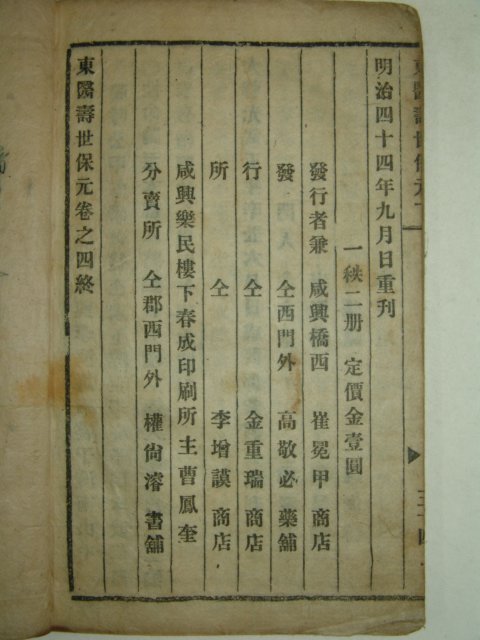 東醫壽世保元
明治四十四年九月日重刊
一秩二册 定價金壹圓
發行者兼 咸興橋西 崔冕甲商店
發 仝西門外 高敬必藥舖
行 仝 金重瑞商店
所 仝 李增謨商店
咸興樂民樓下春成印刷所主曹鳳奎
分賣所 仝郡西門外 權尙濬書舖
東醫壽世保元卷之四終